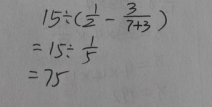 15÷(1/2 - 3/(7+3))
=15÷ 1/5
=75